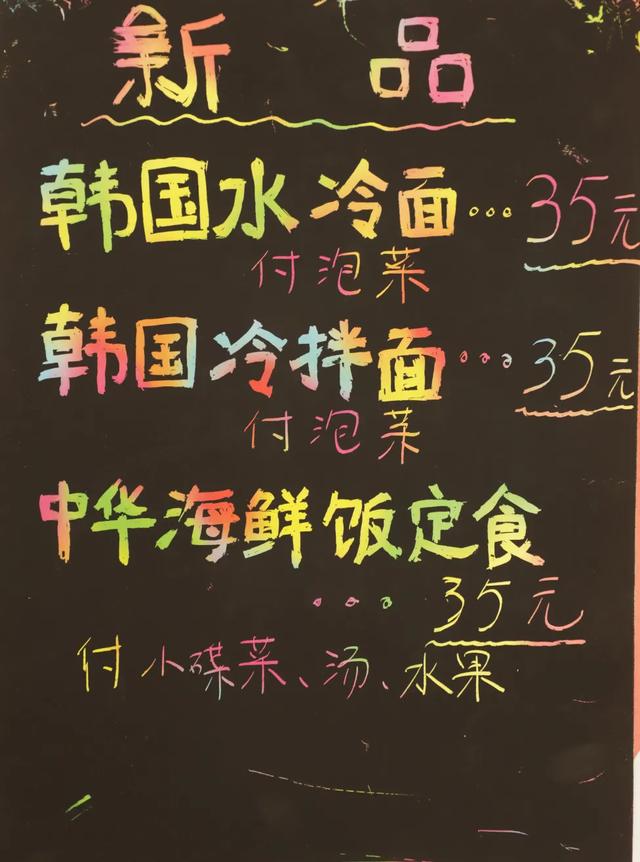 新 品
韩国水冷面...35元
付泡菜
韩国冷拌面...35元
付泡菜
中华海鲜饭定食
...35元
付小碟菜、汤、水果